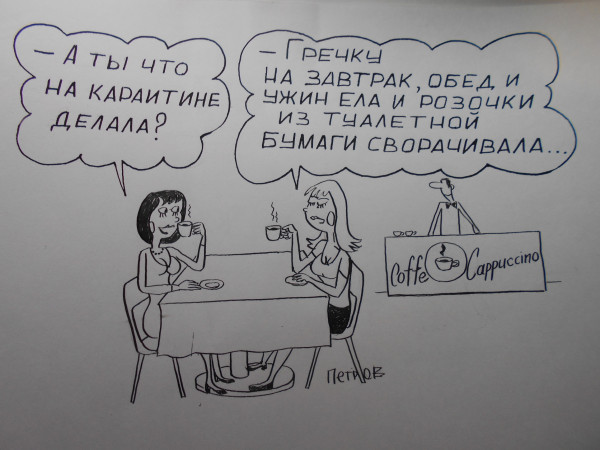 — А ТЫ ЧТО
НА КАРАИТИНЕ
ДЕЛАЛА?
— ГРЕЧКУ
НА ЗАВТРАК, ОБЕД И
УЖИН ЕЛА И РОЗОЧКИ
ИЗ ТУАЛЕТНОЙ
БУМАГИ СВОРАЧИВАЛА...
Coffe Cappuccino
ПЕТРОВ